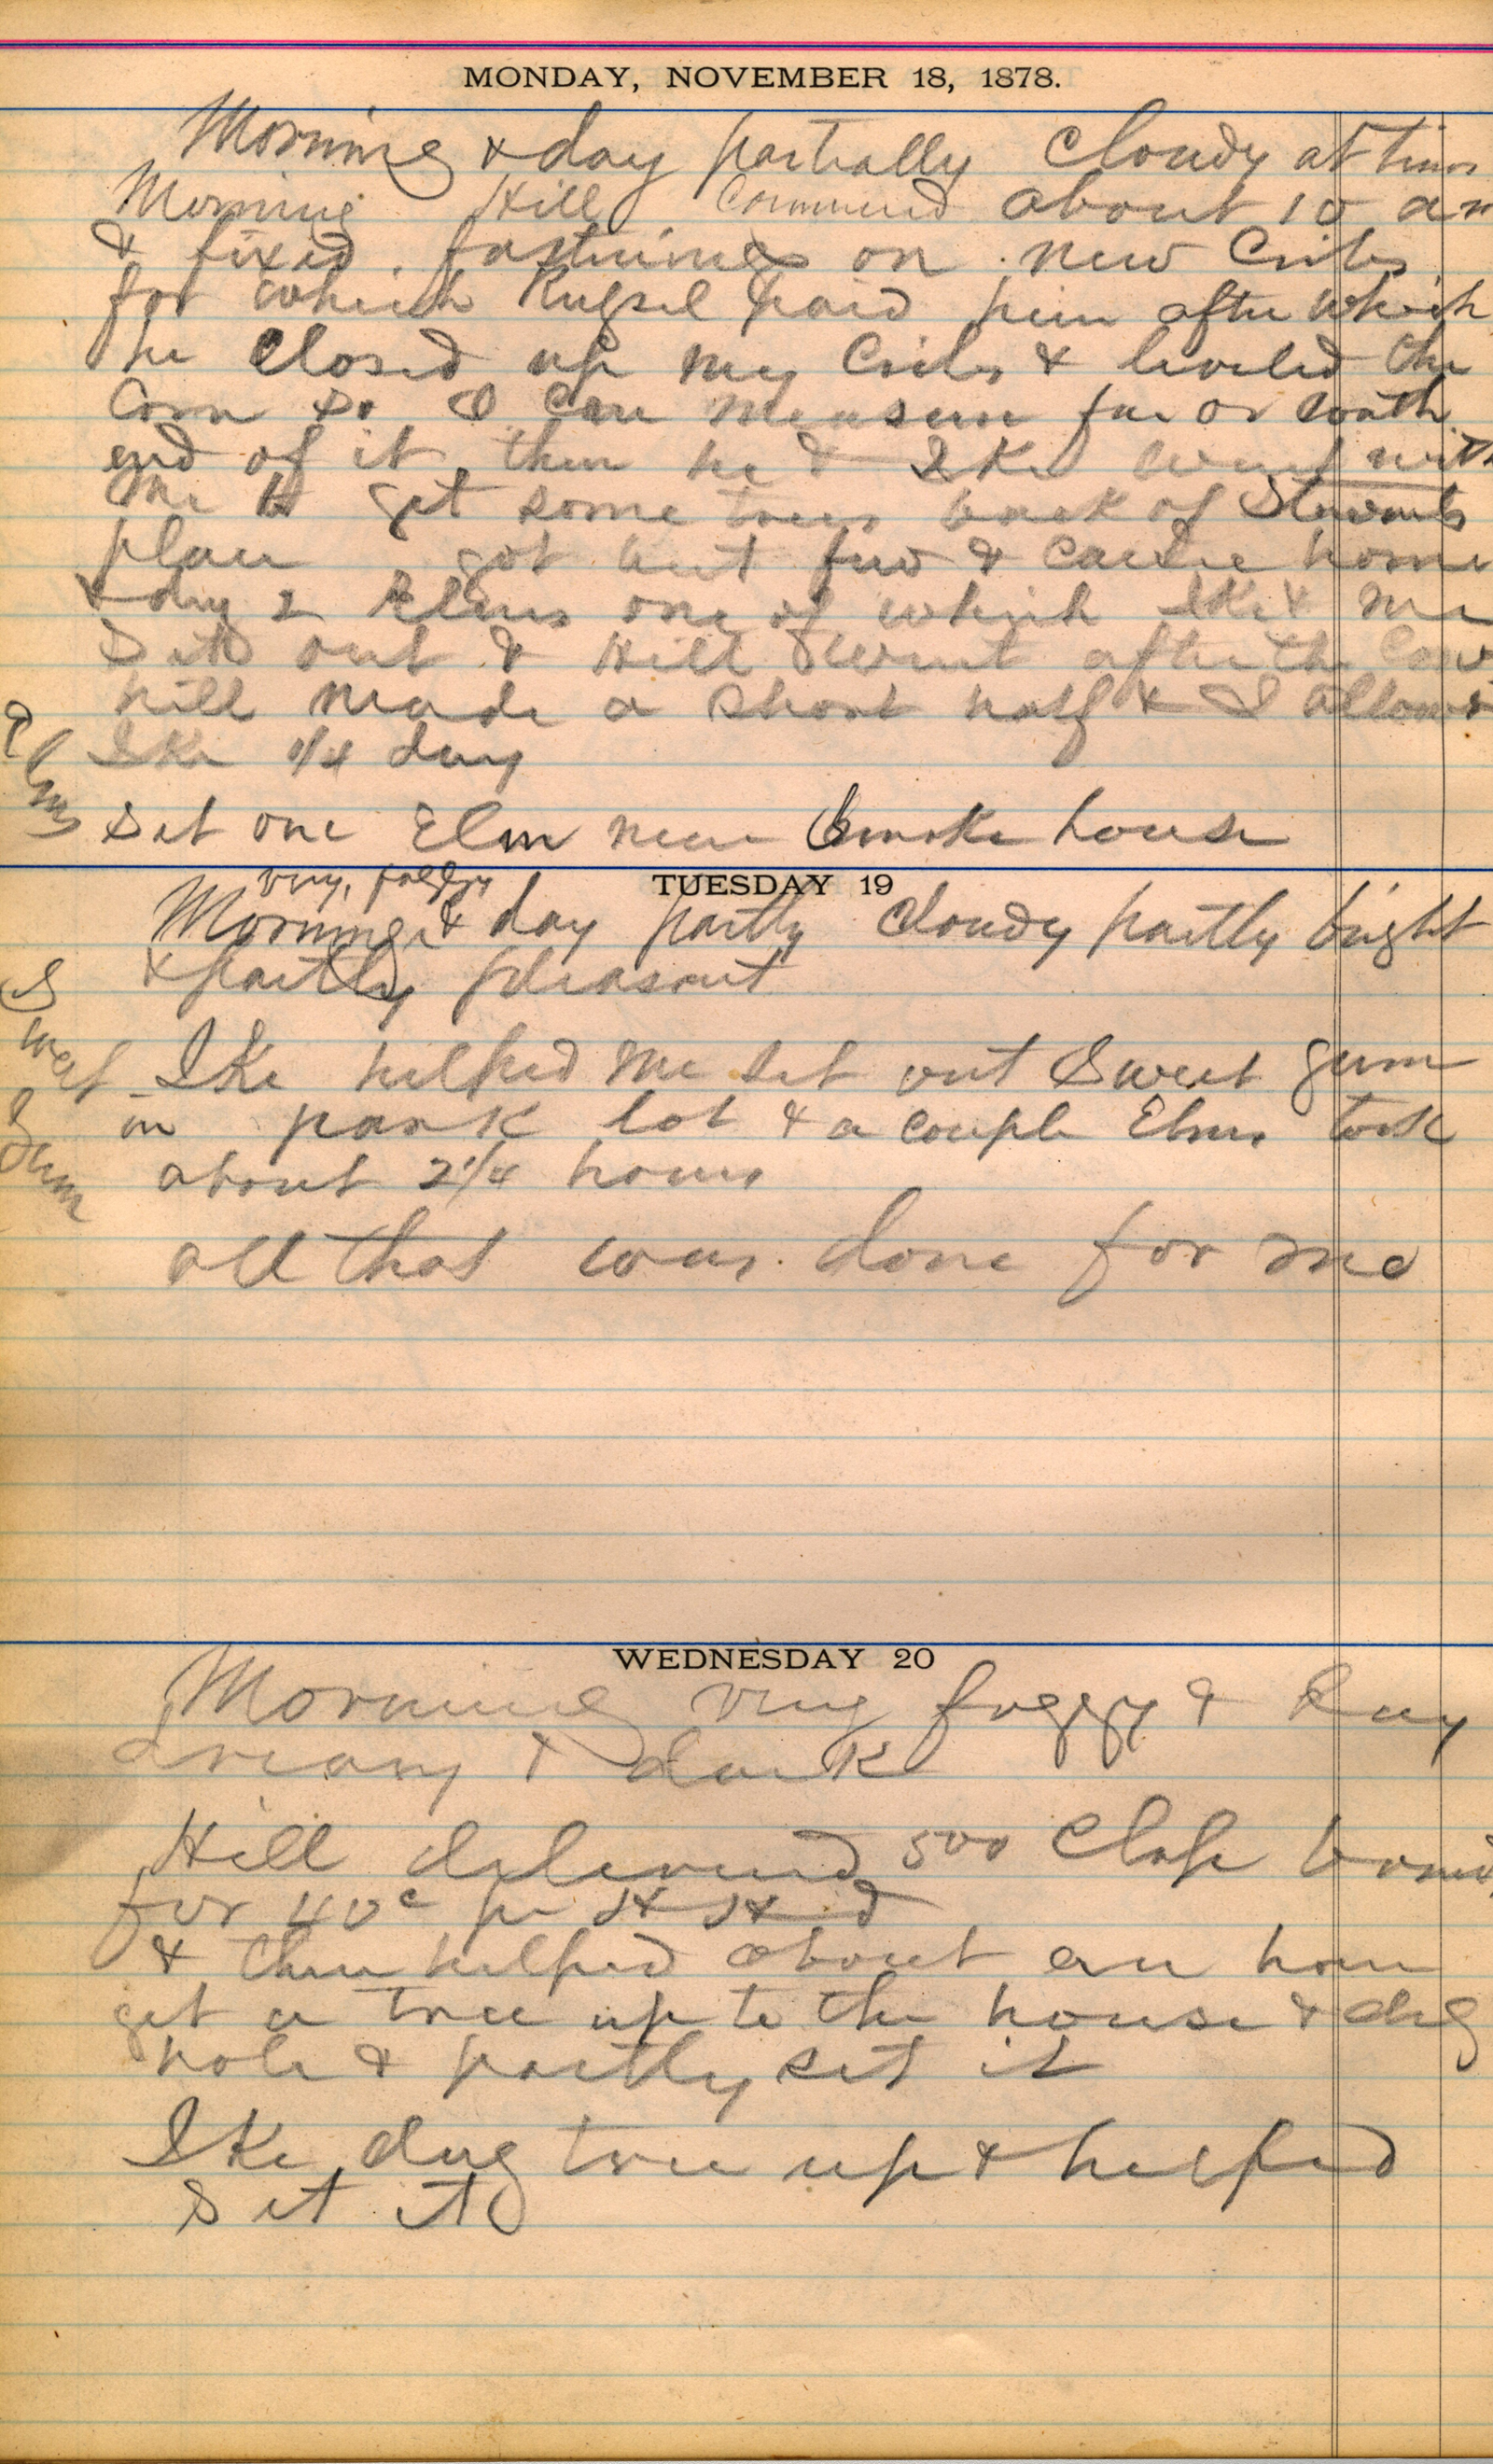 MONDAY, NOVEMBER 18, 1878.
Morning & day partially Cloudy at times
Morning Hill Commenced about 10 am
& fixed fastnings on new Cribs
for which paid him after which
he Closed up my Cribs & leveled the
Corn so I can measure far or South
end of it then he & Ike went with
me to get some trees back of
place got but few & came home
& dug 2 Elms one of which Ike & me
Set out & Hill went after the Cow
Hill made a short half & I allowed
Ike 1/4 day
Elms
Set one Elm near Smoke house
TUESDAY 19
very foggy
Morning & day partly Cloudy partly bright
& partly pleasant
Sweet Gum
Ike helped me set out Sweet gum
in park lot & a couple Elms took
about 2 1/4 hours
all that was done for me
WEDNESDAY 20
Morning very foggy & Day
dreary & dark
Hill delivered 500
for 40c per
& then helped about an hour
get a tree up to the house & dig
hole & partly set it
Ike dug tree up & helped
Set it